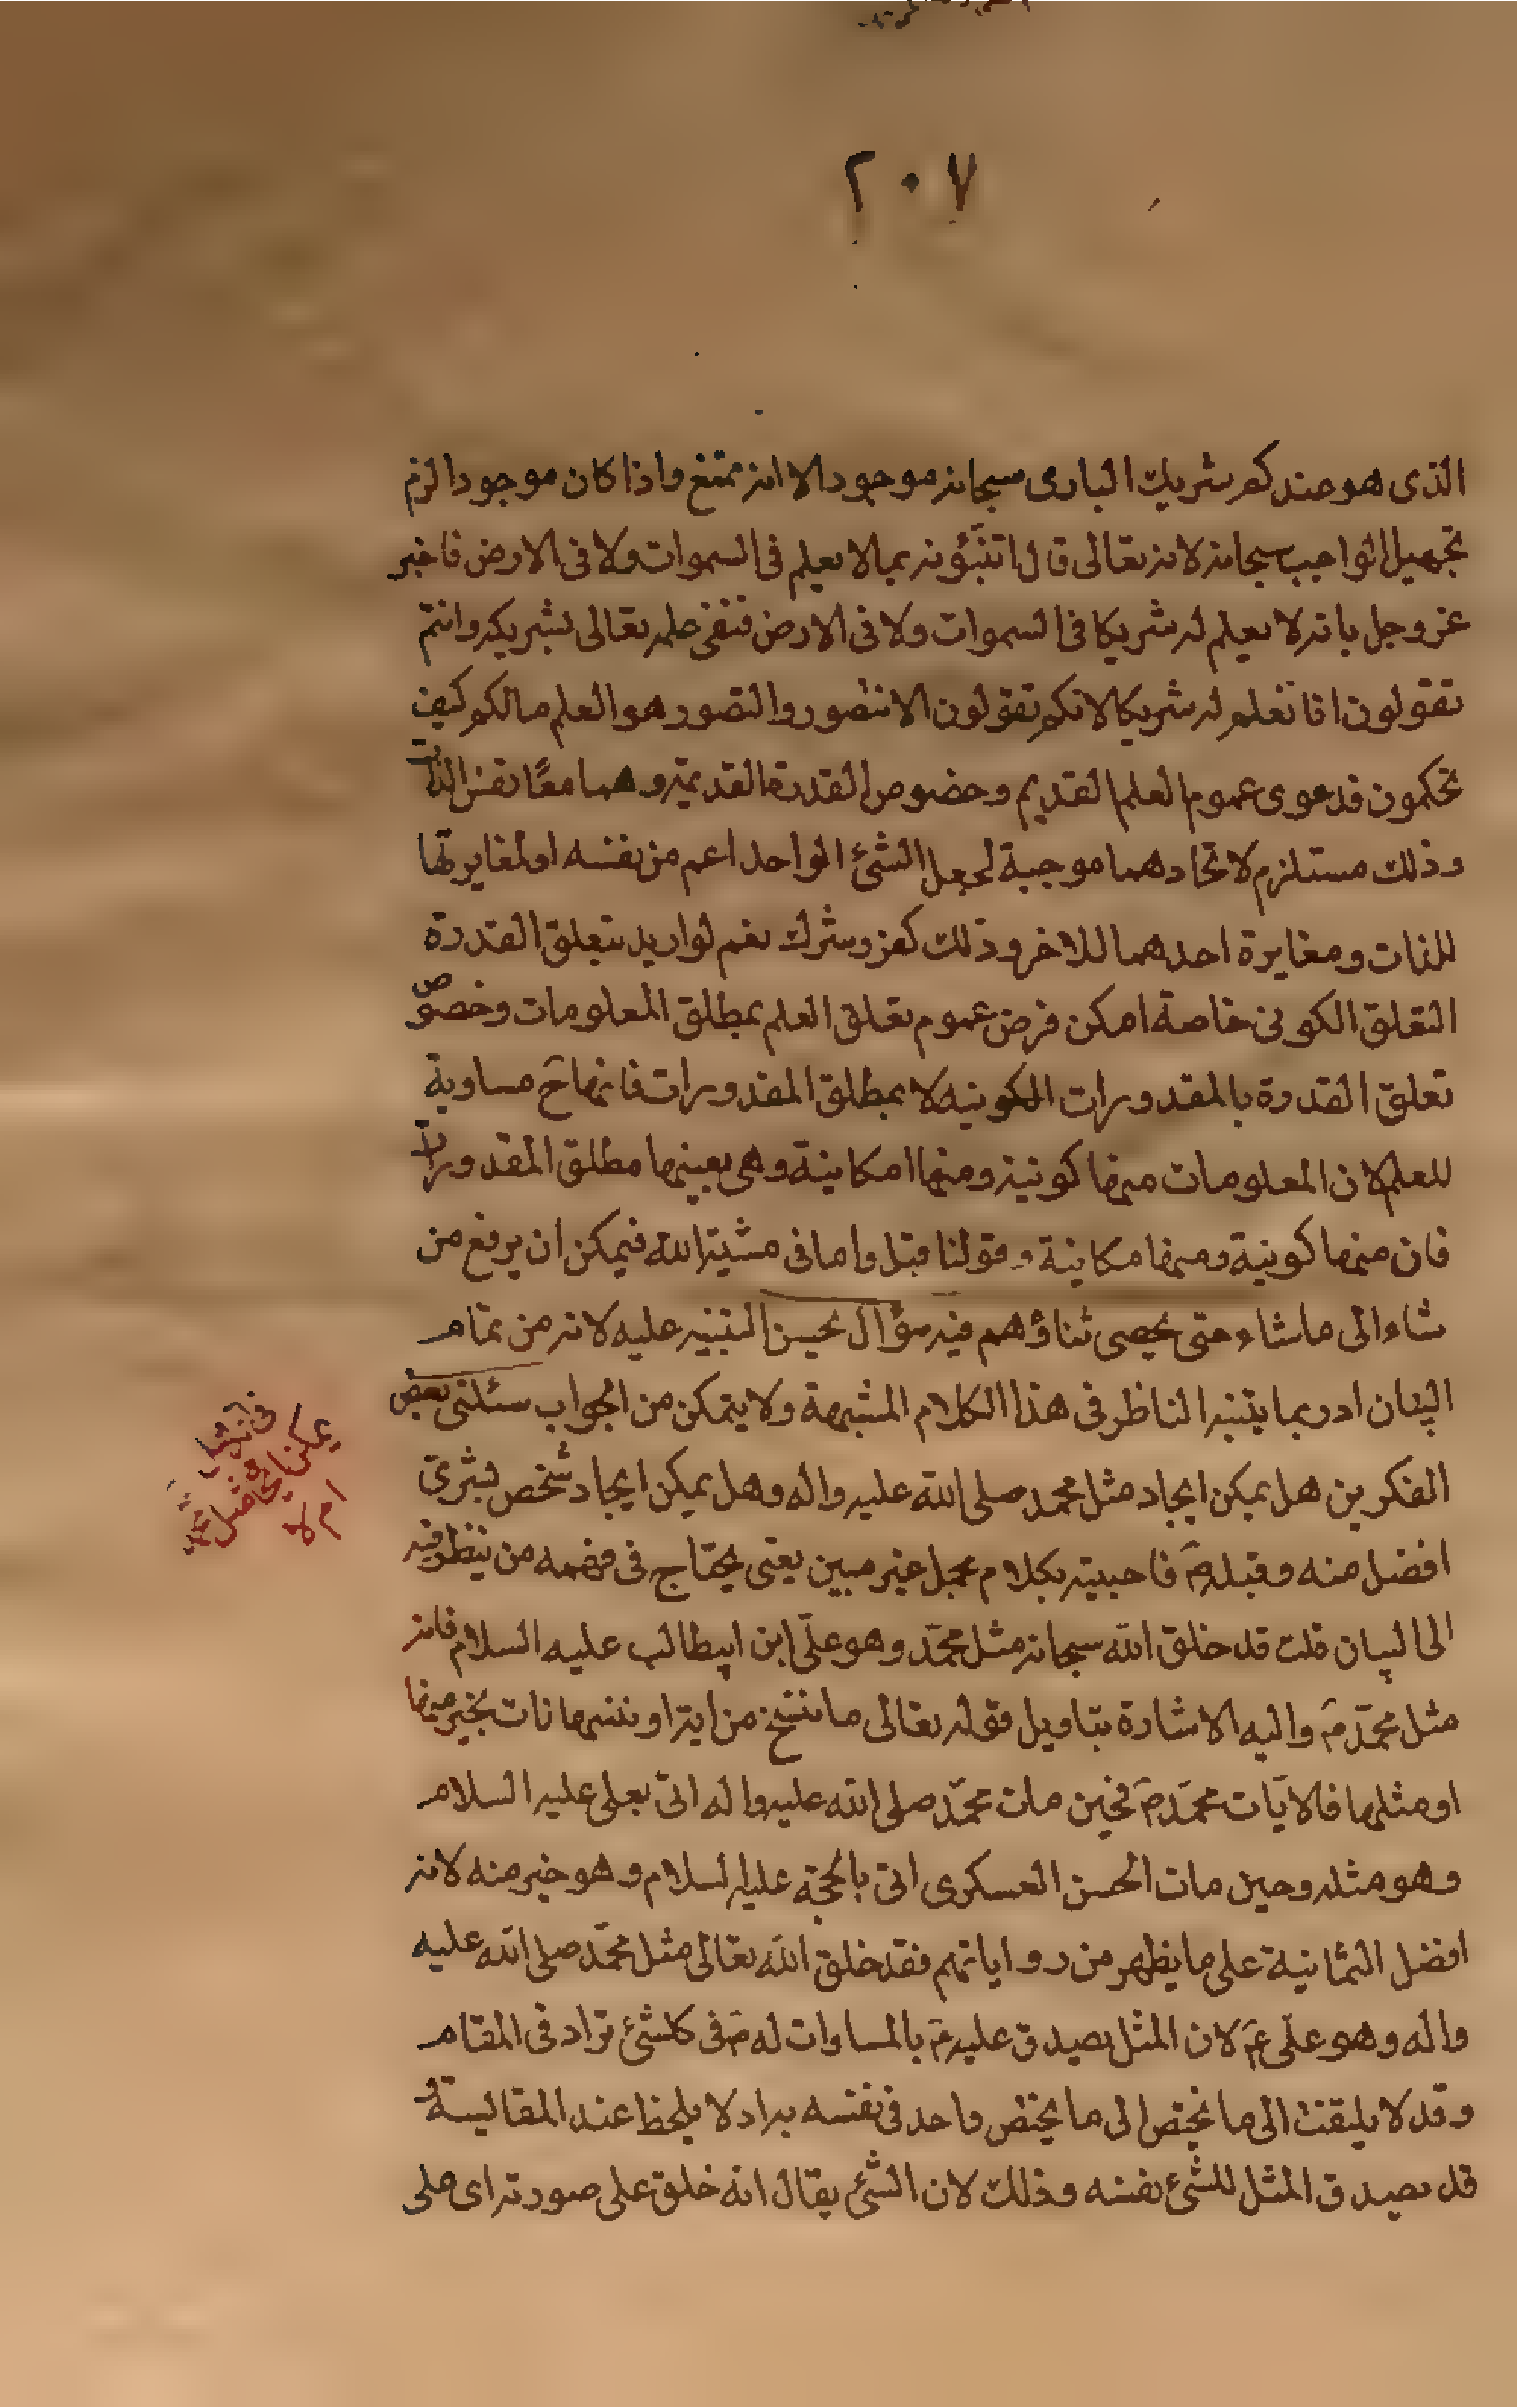 ٢٠٧
الذى هو عندكم شريك البارى سبحانه موجودا الا انه ممتنع واذا كان موجودا لزم
تجهيل الواجب سبحانه لانه تعالى قال اتنبّؤنه بما لا يعلم فى السموات ولا فى الارض فاخبر
عز وجل بانه لا يعلم له شريكا فى السموات ولا فى الارض فنفى علمه تعالى بشريكه وانتم
تقولون انا نعلم له شريكا لانكم تقولون الا نتصور والتصور هو العلم مالكم كيف
تحكمون فدعوى عموم العلم القديم وخصوص القدرة القديمة وهما معًا نفس الذات
وذلك مستلزم لاتحادهما موجبة لجعل الشئ الواحد اعم من نفسه او لمغايرتها
للذات ومغايرة احدهما للاخر وذلك كفر وشرك نعم لو اريد بتعلق القدرة
التعلق الكونى خاصة امكن فرض عموم تعلق العلم بمطلق المعلومات وخصوص
تعلق القدرة بالمقدورات الكونيه لا بمطلق المقدورات فانها ح مساوية
للعلم لان المعلومات منها كونية ومنها امكانية وهى بعينها مطلق المقدورات
فان منها كونية ومنها مكانية وقولنا قبل واما فى مشية الله فيمكن ان يرفع من
شاء الى ما شاء حتى يحصى ثناؤهم فيه سؤال يحسن التنبيه عليه لانه من تمام
البيان اد ربما يتنبه الناظر فى هذا الكلام المشبهة ولا يتمكن من الجواب سئلنى بعض
الفكرين هل يمكن ايجاد مثل محمد صلى الله عليه واله وهل يمكن ايجاد شخص بشرى
افضل منه وقبله ص فاجبته بكلام مجمل غير مبين يعنى يحتاج فى فهمه من ينظر فيه
الى البيان قلت قد خلق الله سبحانه مثل محمّد وهو علىّ ابن ابيطالب عليه السلام فانه
مثل محمّد ص واليه الاشارة بتاويل قوله تعالى ما ننسخ من اية او ننسها نات بخير منها
او مثلها فالايات محمّد ص فحين مات محمّد صلى الله عليه واله اتى بعلى عليه السلام
وهو مثله وحين مات الحسن العسكرى اتى بالحجّة عليه السلام وهو خير منه لانه
افضل الثمانية على ما يظهر من رواياتهم فقد خلق الله تعالى مثل محمّد صلى الله عليه
واله وهو علىّ ع لان المثل يصدق عليه ص بالمساوات له ص فى كلشئ تراد فى المقام
وقد لا يلتفت الى ما يختص الى ما يختص واحد فى نفسه يراد لا يلحظ عند المقايسة و
قد يصدق المثل للشئ نفسه وذلك لان الشئ يقال انه خلق على صورته اى على
يمكن ايجاد مثل محمد
ام لا